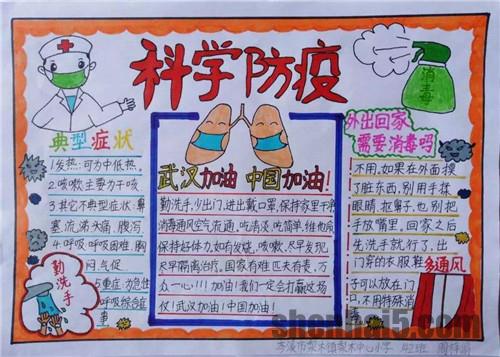 科学防疫
消毒
典型症状
1发热:可为中低热。
2.咳嗽:主要为干咳
3其它不典型症状:鼻
塞,流涕头痛,腹泻
4.呼吸:呼吸困难,胸
闷,气促
5重症:为急性
呼吸综合症
勤洗手
武汉加油 中国加油!
勤洗手,少出门,进出戴口罩,保持家里干净
消毒通风空气流通,吃清淡,吃简单,维他命
保持好体力,如有发烧,咳嗽,尽早发现
尽早隔离治疗。国家有难 匹夫有责,万
众一心!!!加油!我们一定会打赢这场
仗!武汉加油!中国加油!
外出回家
需要消毒吗
不用,如果在外面摸
了脏东西,别用手揉
眼睛,抠鼻子,也别把
手放嘴里。回家之后
先洗手就行了,出
门穿的衣服鞋
子可以放在门
口,不用特殊消
多通风
shenqi5.com